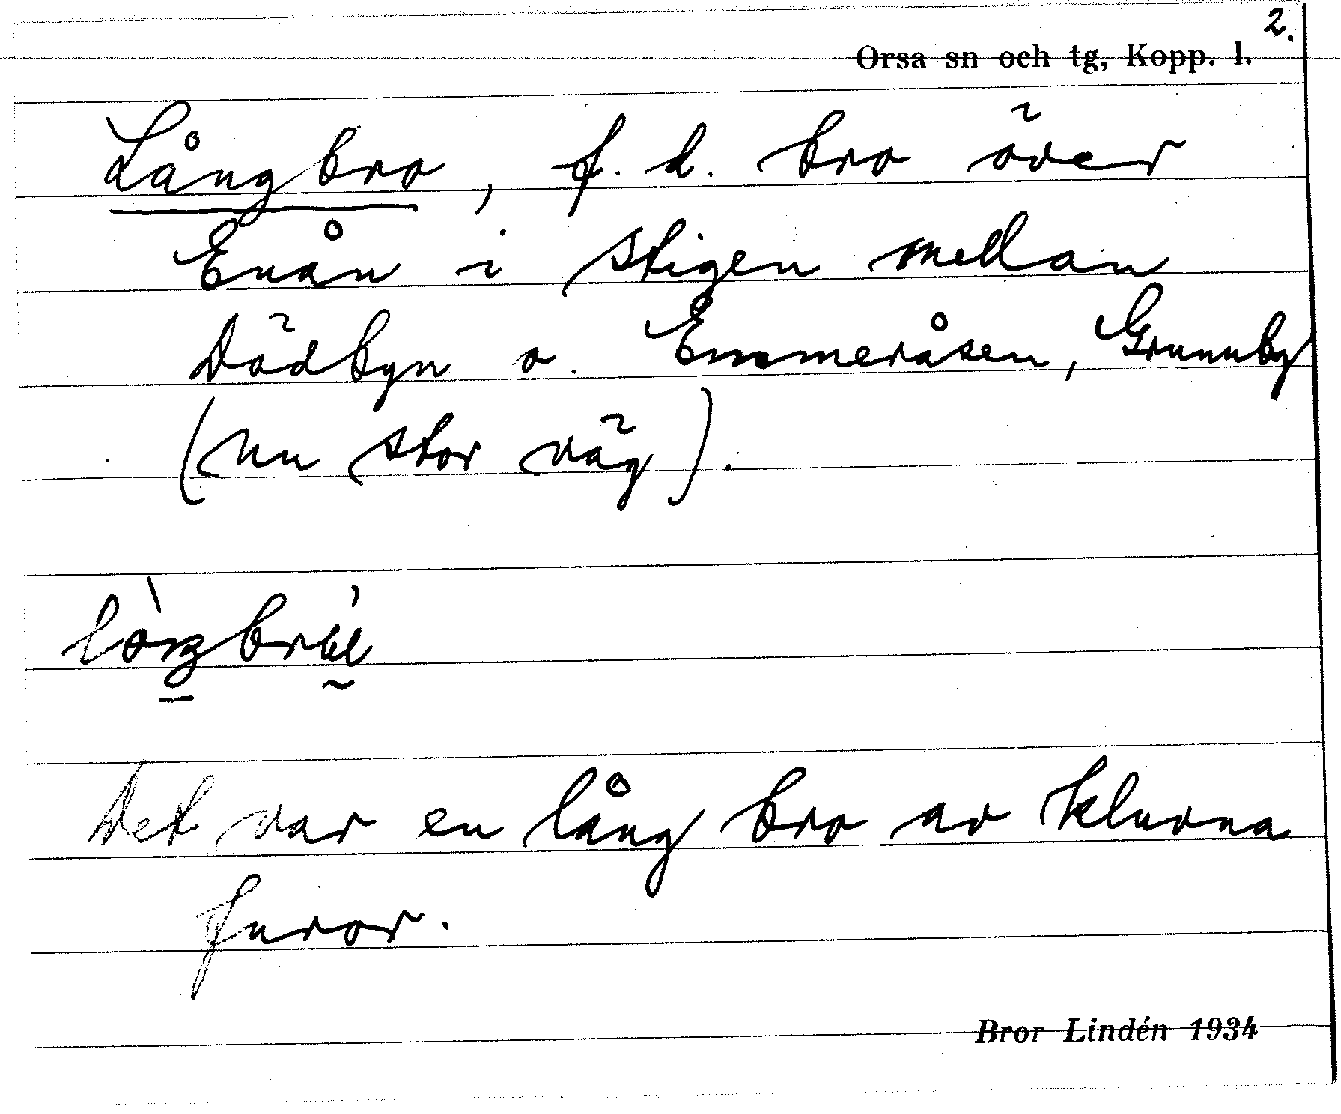 2.
Orsa sn och tg, Kopp. l.
Långbro, f. d. bro över
Enån i stigen mellan
Dödbyn o. Emmeråsen, Grunuby
(nu stor väg).
Det var en lång bro av kluvna
furor.
Bror Lindén 1934